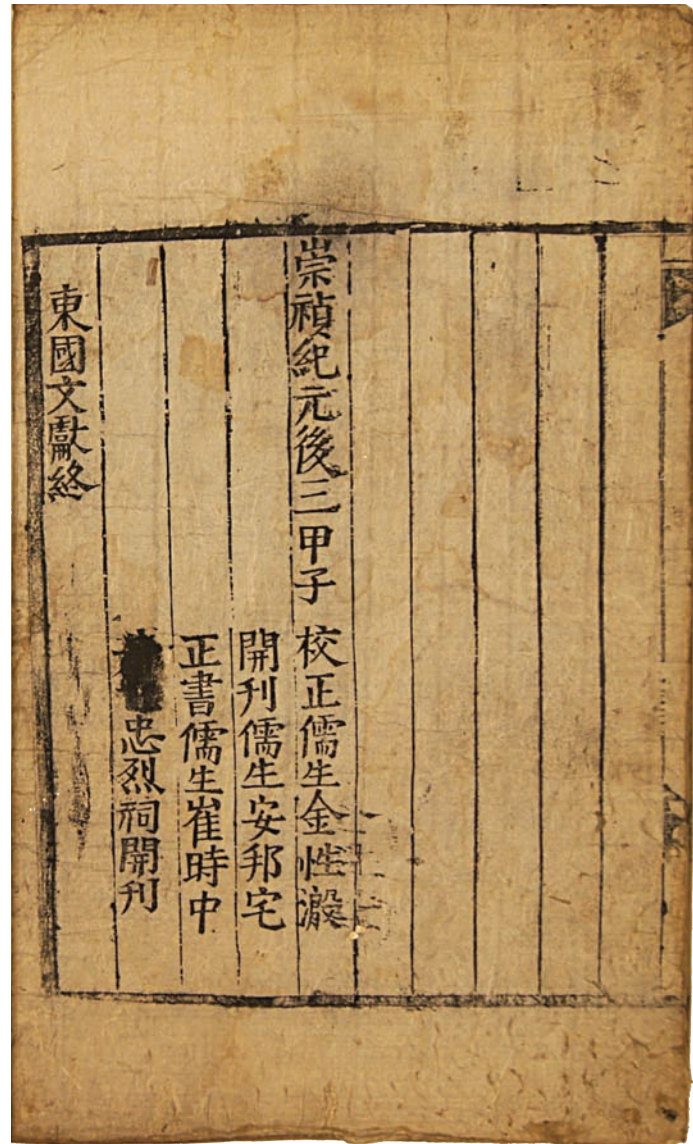 崇禎紀元後三甲子 校正儒生金性溵
開刊儒生安邦宅
正書儒生崔時中
忠烈祠開刊
東國文獻終